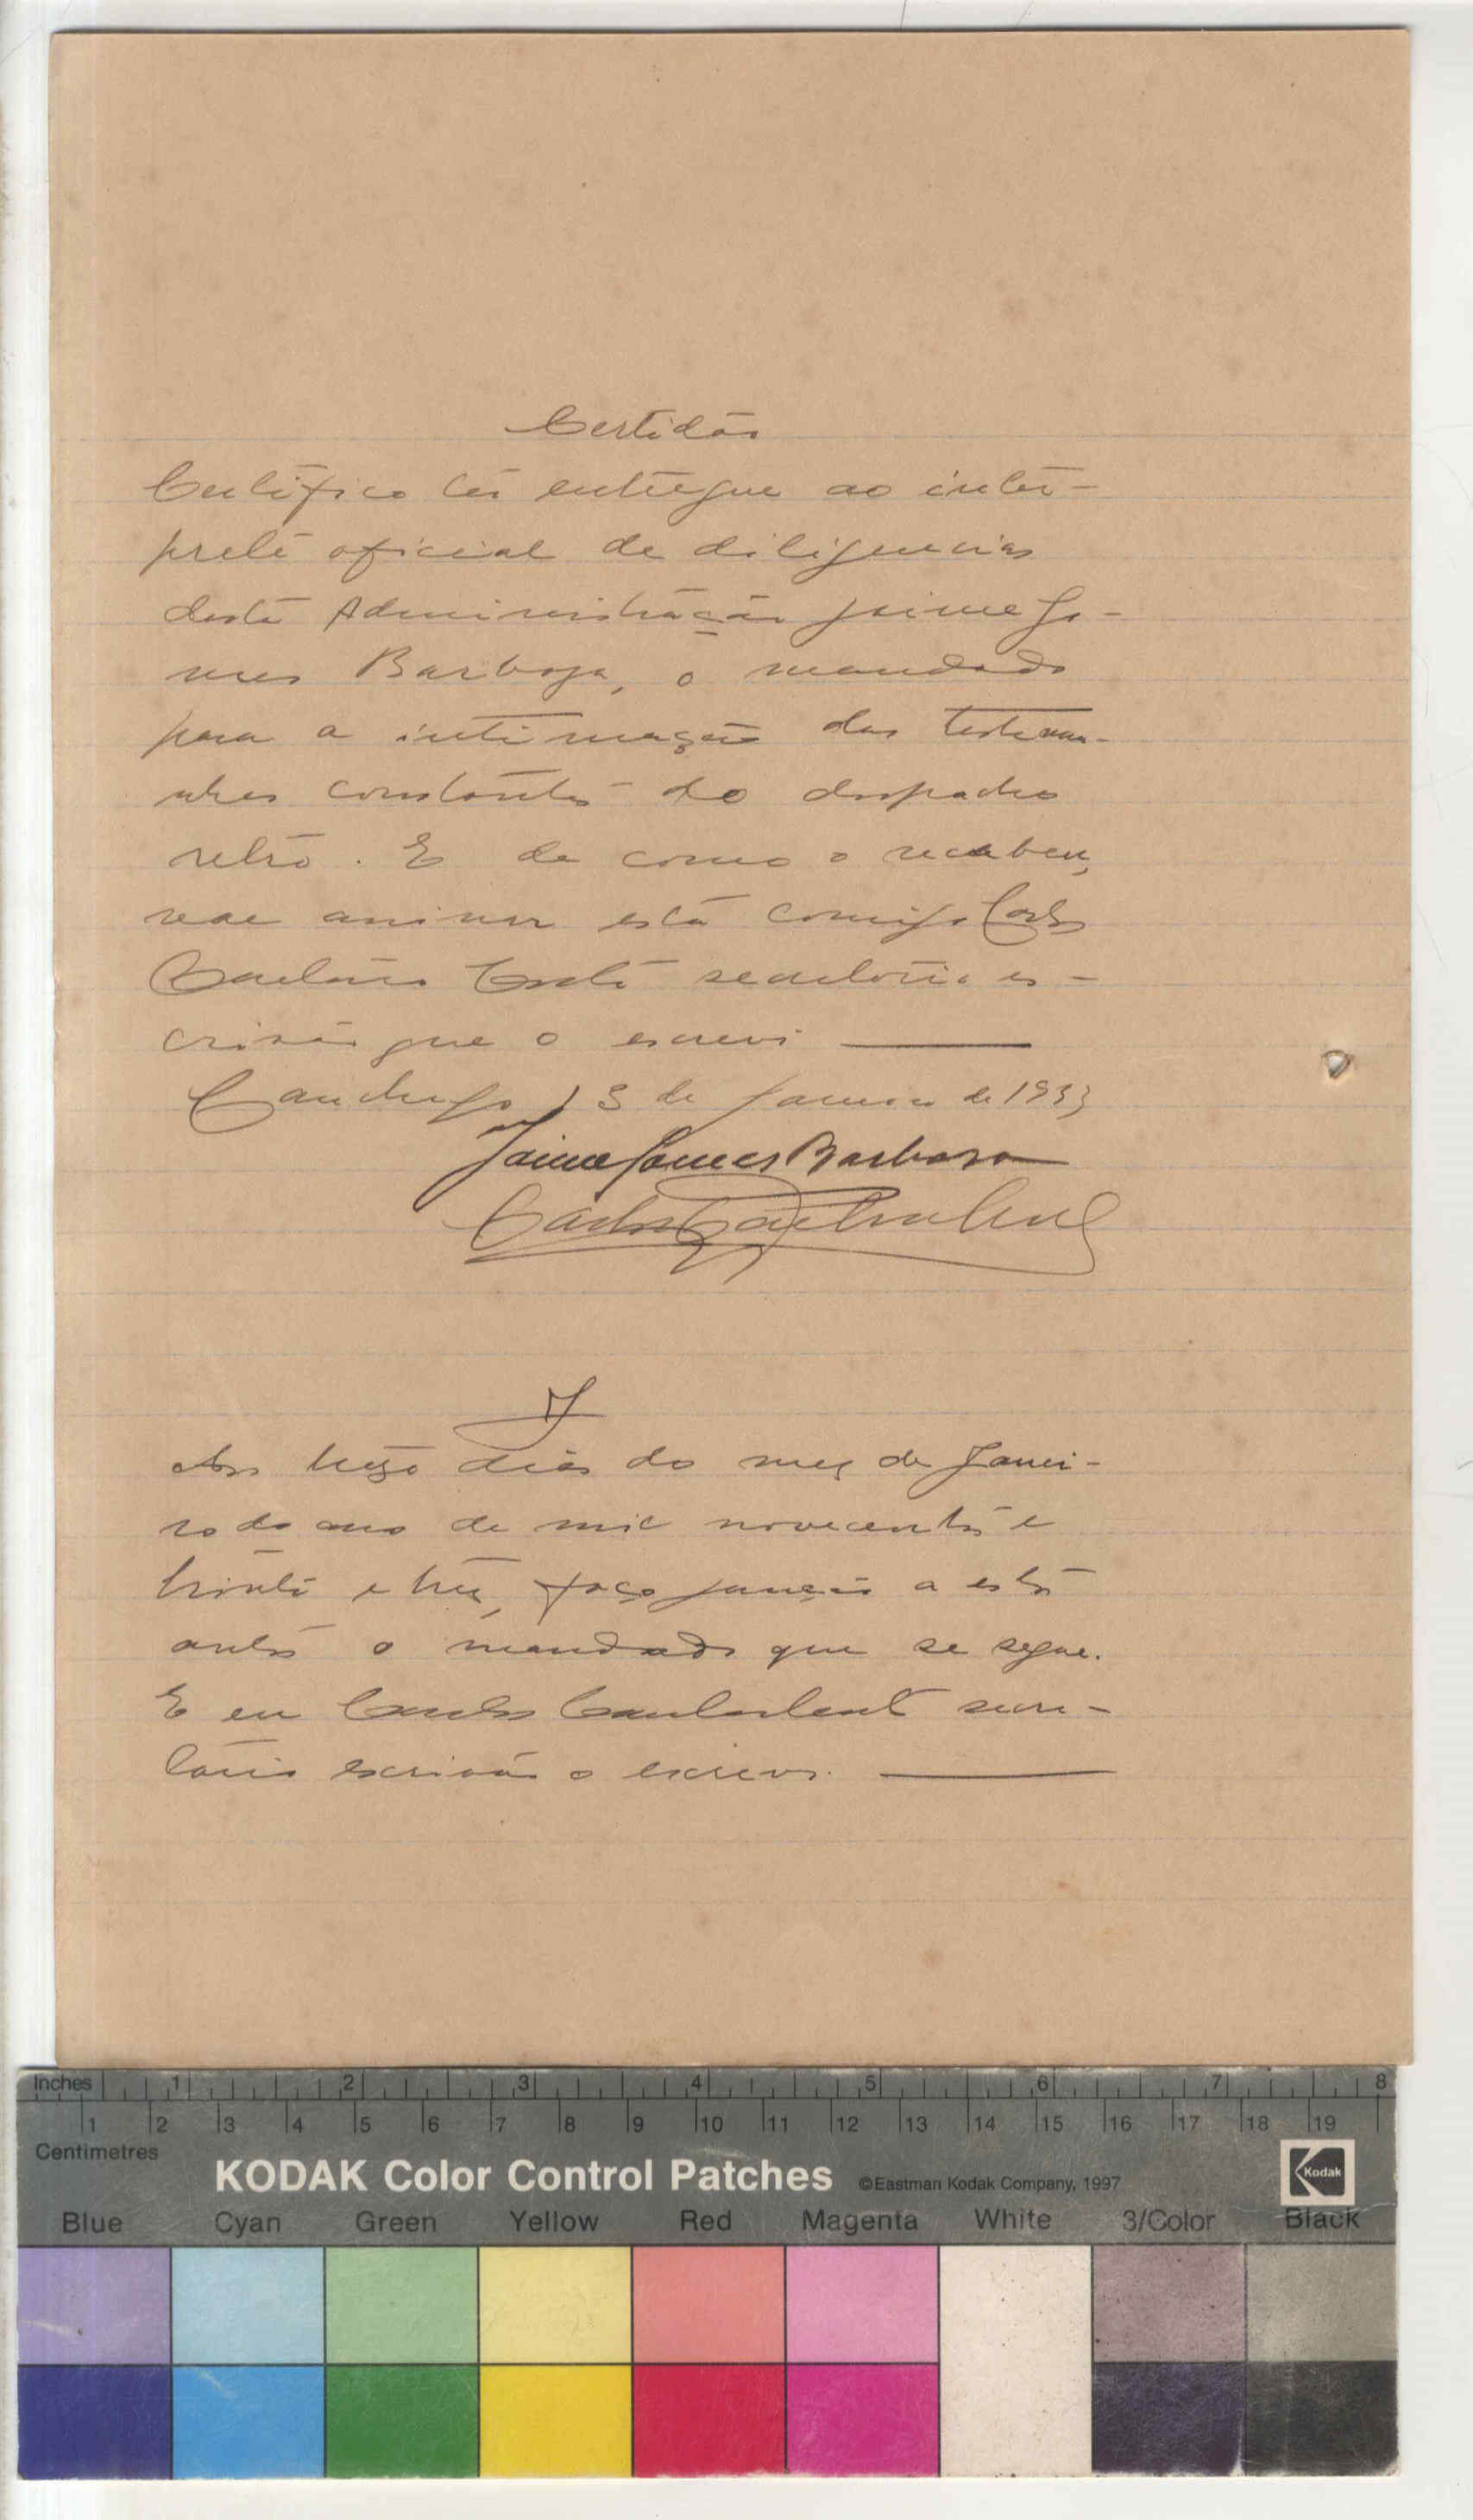 Certidão
Certifico ter entregue ao inter-
prete oficial de diligencias
desta Administração Jaime Go-
mes Barbosa, o mandado
para a intimação das testemu-
nhas constantes do despacho
retro. E de como o recebeu,
vae assinar esta comigo Carlos
Caetano Costa secretario es-
crivão que o escrevi
Canchungo 13 de Janeiro de 1933
Jaime Gomes Barbosa
Carlos Caetano Costa
J
Aos treze dias do mez de Janei-
ro do ano de mil novecentos e
trinta e trez, faço junção a estes
autos o mandado que se segue.
E eu Carlos Caetano Costa secre-
tario escrivão o escrevi.
Inches 1 2 3 4 5 6 7 8
1 2 3 4 5 6 7 8 9 10 11 12 13 14 15 16 17 18 19
Centimetres
KODAK Color Control Patches ©Eastman Kodak Company, 1997 Kodak
Blue Cyan Green Yellow Red Magenta White 3/Color Black